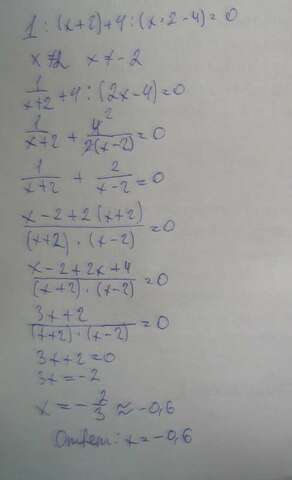 1 : (x+2)+4 : (x·2-4)=0
x≠2 x≠-2
1/(x+2) + 4 : (2x-4)=0
1/(x+2) + 4²/2(x-2) = 0
1/(x+2) + 2/(x-2) = 0
(x-2+2(x+2))/((x+2)·(x-2)) = 0
(x-2+2x+4)/((x+2)·(x-2)) = 0
(3x+2)/((x+2)·(x-2)) = 0
3x+2=0
3x=-2
x = -2/3 ≈ -0,6
Ответ: x=-0,6